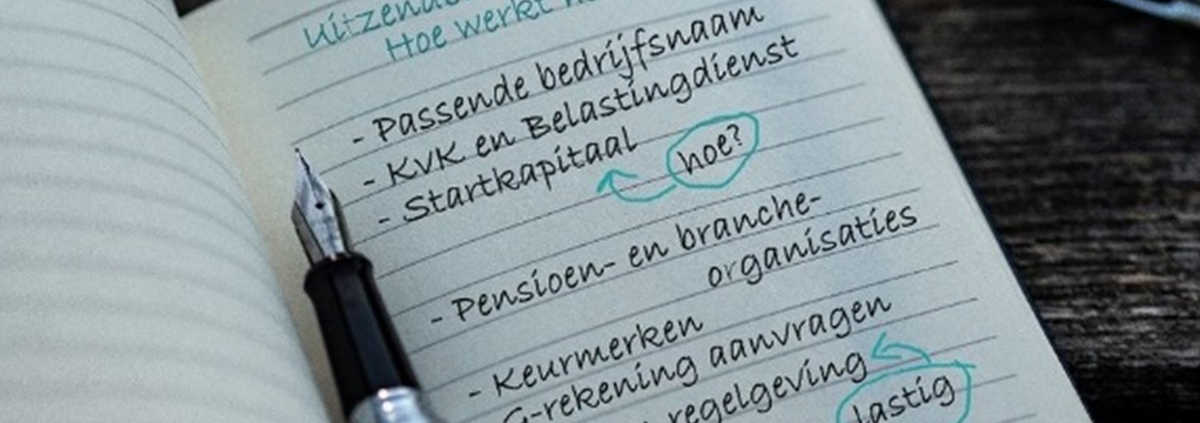 Hoe werkt
- Passende bedrijfsnaam
- KVK en Belastingdienst
- Startkapitaal
hoe?
- Pensioen- en branche-
organisaties
- Keurmerken
G-rekening aanvragen
regelgeving
lastig